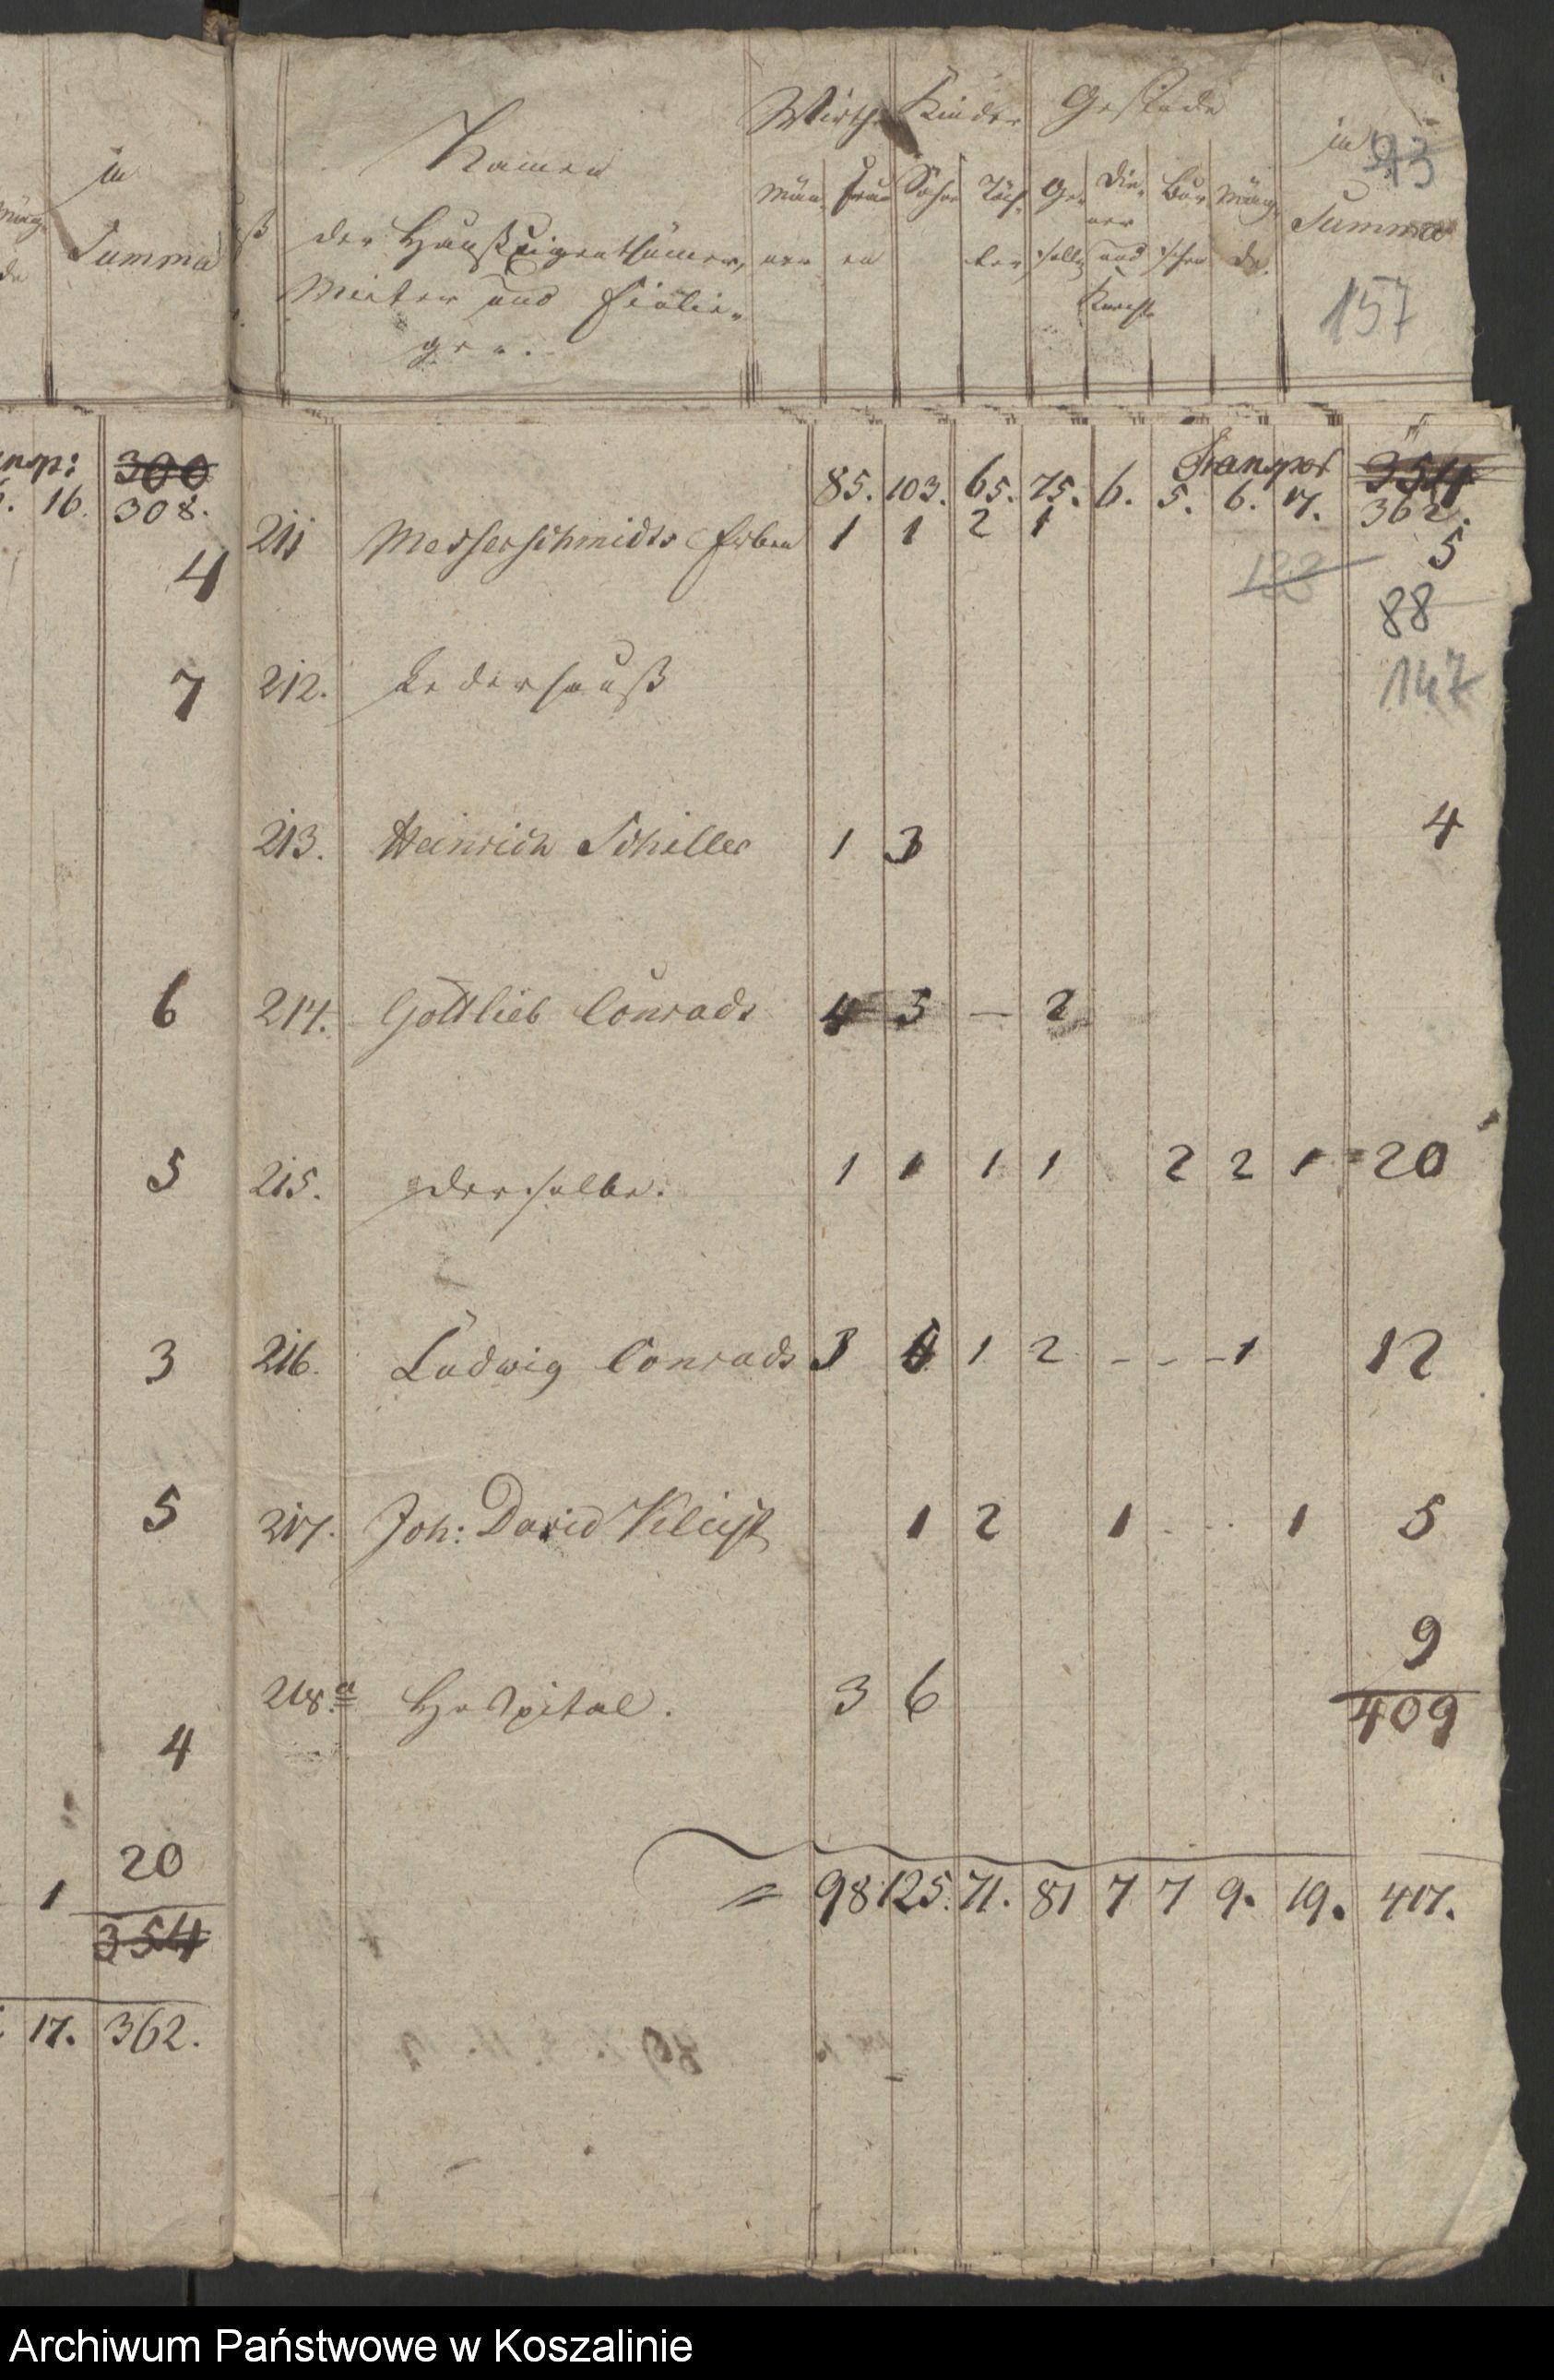 in
Summa
nsp:
16.
300
308.
4
7
6
5
3
5
4
20
1
354
17. 362.
Namen
der Hauß Eigenthümer,
Mieter und Einlie-
ger.
Wirthe Kinder Gesinde
in
93
Män- Frau Söhne Töch- Ge- Die- Bur- Mäg-
ner
Summa
ner en ter selle und schen de.
Knechte
157
Transport 354
85. 103. 65. 75. 6. 5. 6. 17. 362.
211 Messerschmidts Erben 1 1 2 1 5
133
88
147
212. Lederhauß
213. Heinrich Schiller 1 3 4
214. Gottlieb Conrads 4 5 — 2
215. derselbe. 1 1 1 1 2 2 1 20
216. Ludwig Conrads 3 5 1 2 - - - 1 12
217. Joh: David Kleist 1 2 1 1 5
9
218.a Hospital. 3 6
409
= 98 125. 71. 81 7 7 9. 19. 417.
Archiwum Państwowe w Koszalinie